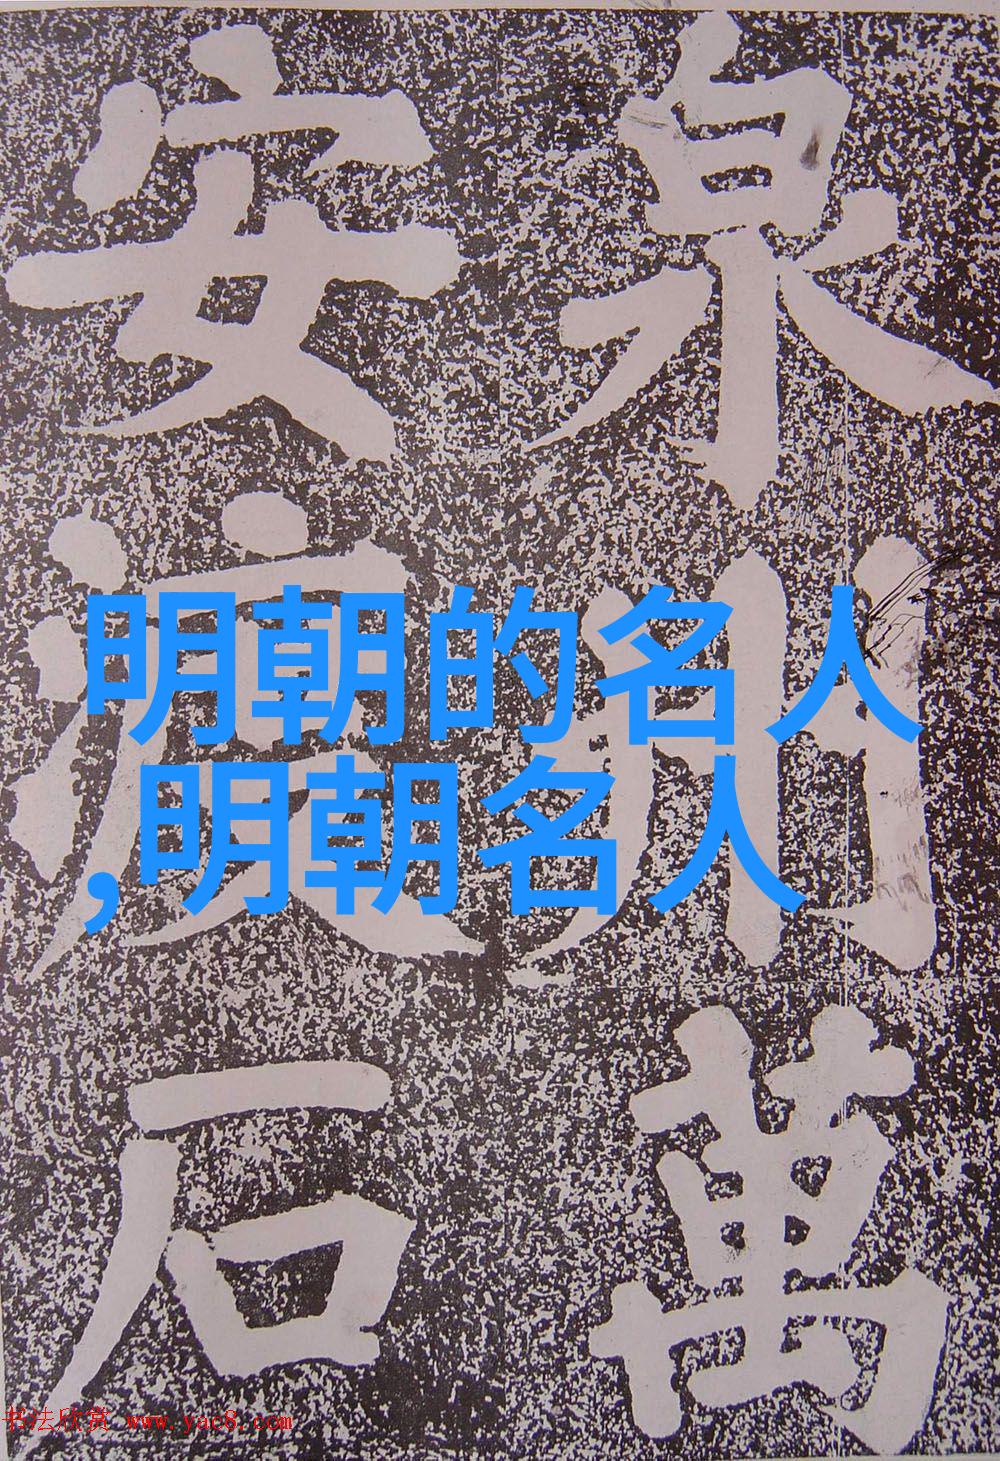 泉州萬
安渡石
明朝的名人
,明朝名人
书法欣赏 www.yac8.com